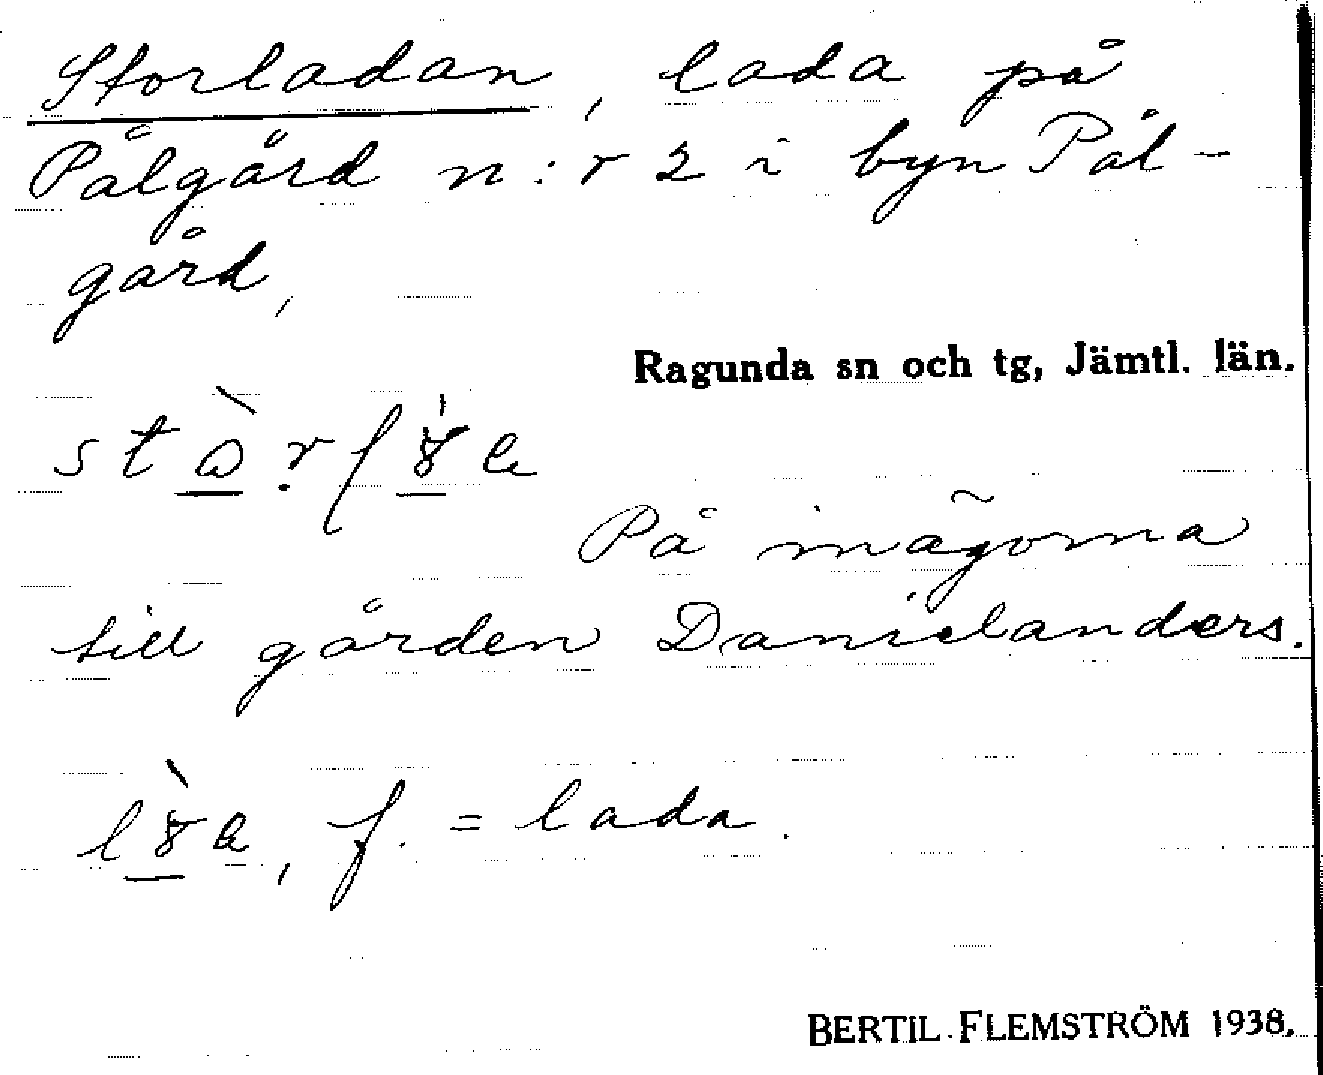 Storladan, lada på
Pålgård n:r 2 i byn Pål-
gård,
Ragunda sn och tg, Jämtl. län.
På inägorna
till gården Danielanders.
f. = lada.
BERTIL FLEMSTRÖM 1938.